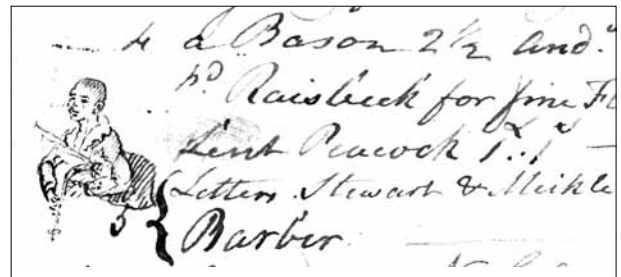 4 a Bason 2½ and.
pd Raisbeck for fine
Lent Peacock 1..1
Letters. Stewart & Meikle
5 { Barber